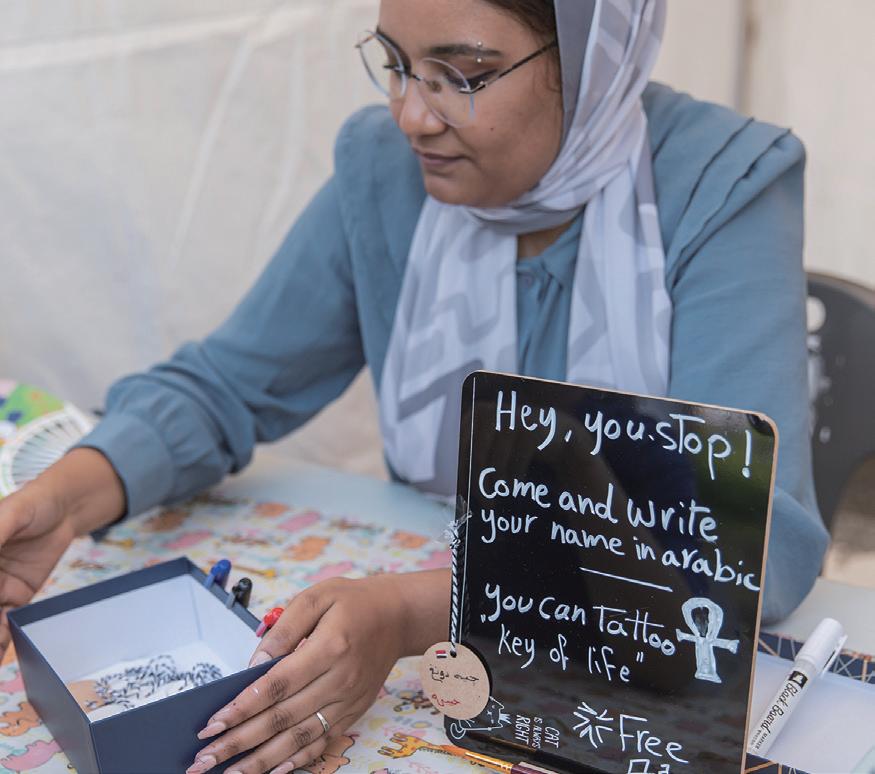 Hey, you. stop!
Come and write
your name in arabic
you can Tattoo
"key of life"
CAT
IS ALWAYS
RIGHT
Free
Black Board